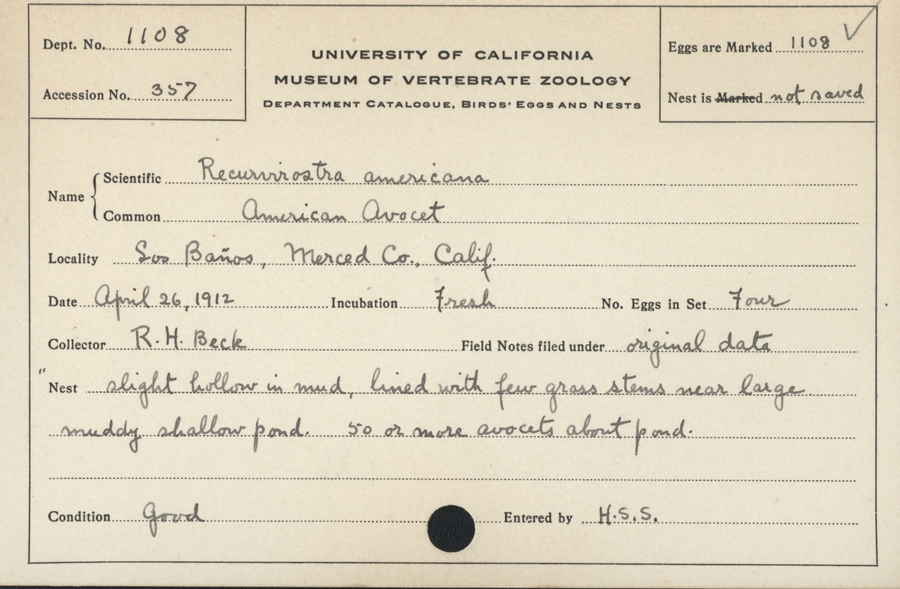 Dept. No. 1108
Accession No. 357
UNIVERSITY OF CALIFORNIA
MUSEUM OF VERTEBRATE ZOOLOGY
DEPARTMENT CATALOGUE, BIRDS' EGGS AND NESTS
Eggs are Marked 1108 ✓
Nest is Marked not saved
Name
Scientific Recurvirostra americana
Common American Avocet
Locality Los Baños, Merced Co., Calif.
Date April 26, 1912 Incubation Fresh No. Eggs in Set Four
Collector R. H. Beck Field Notes filed under original data
" Nest slight hollow in mud, lined with few grass stems near large
muddy shallow pond. 50 or more avocets about pond.
Condition Good Entered by H.S.S.